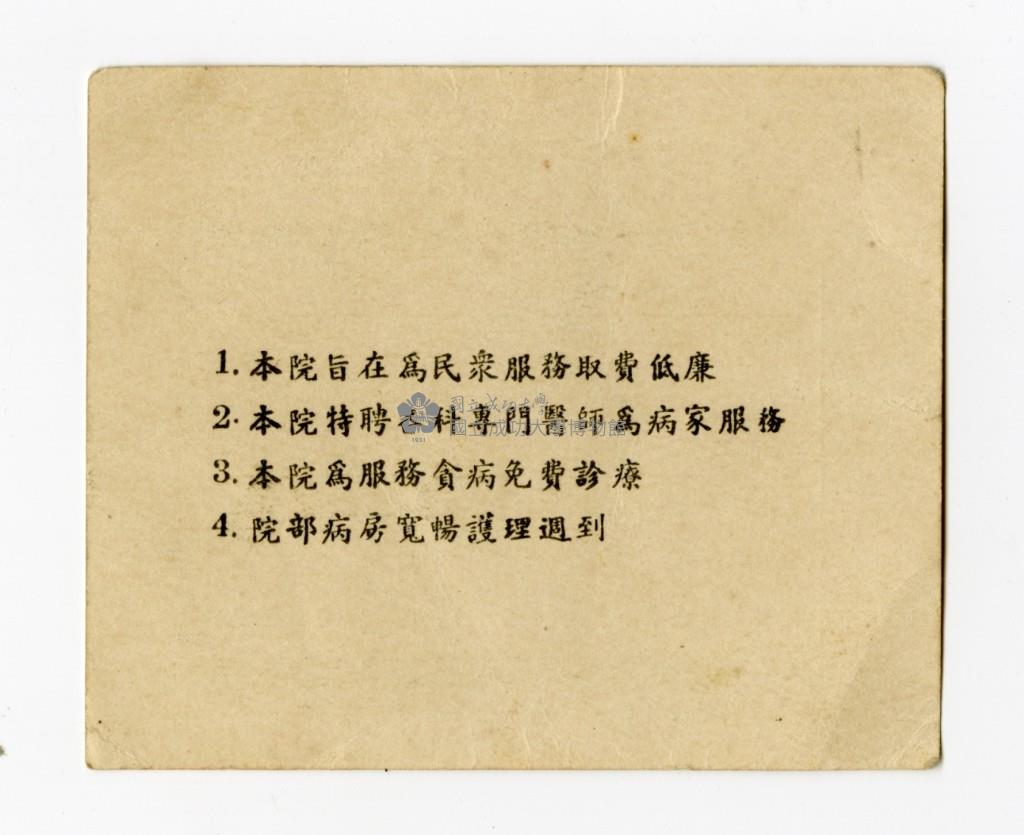 1. 本院旨在爲民衆服務取費低廉
2. 本院特聘各科專門醫師爲病家服務
3. 本院爲服務貪病免費診療
4. 院部病房寬暢護理週到
國立成功大學
國立成功大學博物館
1931